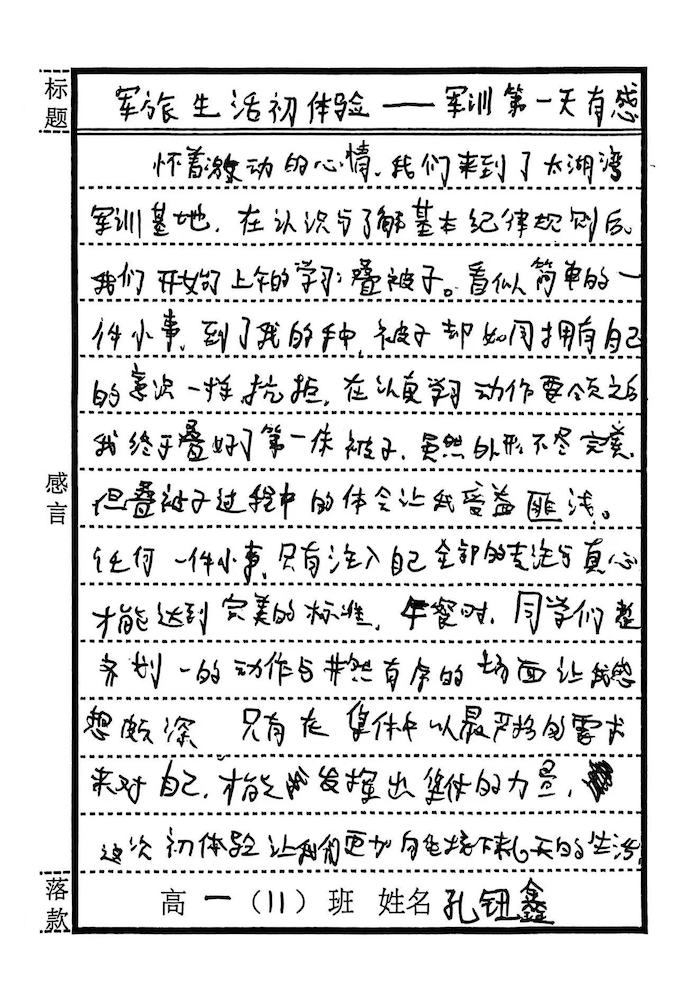 标题
军旅生活初体验——军训第一天有感
怀着激动的心情,我们来到了太湖湾
军训基地,在认识与了解基本纪律规则后,
我们开始了上午的学习:叠被子。看似简单的一
件小事,到了我的手中,被子却如同拥有自己
的意识一样抗拒,在认真学习动作要领之后
我终于叠好了第一床被子,虽然外形不尽完美,
但叠被子过程中的体会让我受益匪浅。
任何一件小事,只有注入自己全部的专注与真心
才能达到完美的标准,午餐时,同学们整
齐划一的动作与井然有序的场面让我感
想颇深 只有在集体中以最严格的要求
来对自己,才能发挥出集体的力量,
这次初体验让我们更加向往接下来6天的生活
感言
落款
高一(11)班 姓名 孔钮鑫